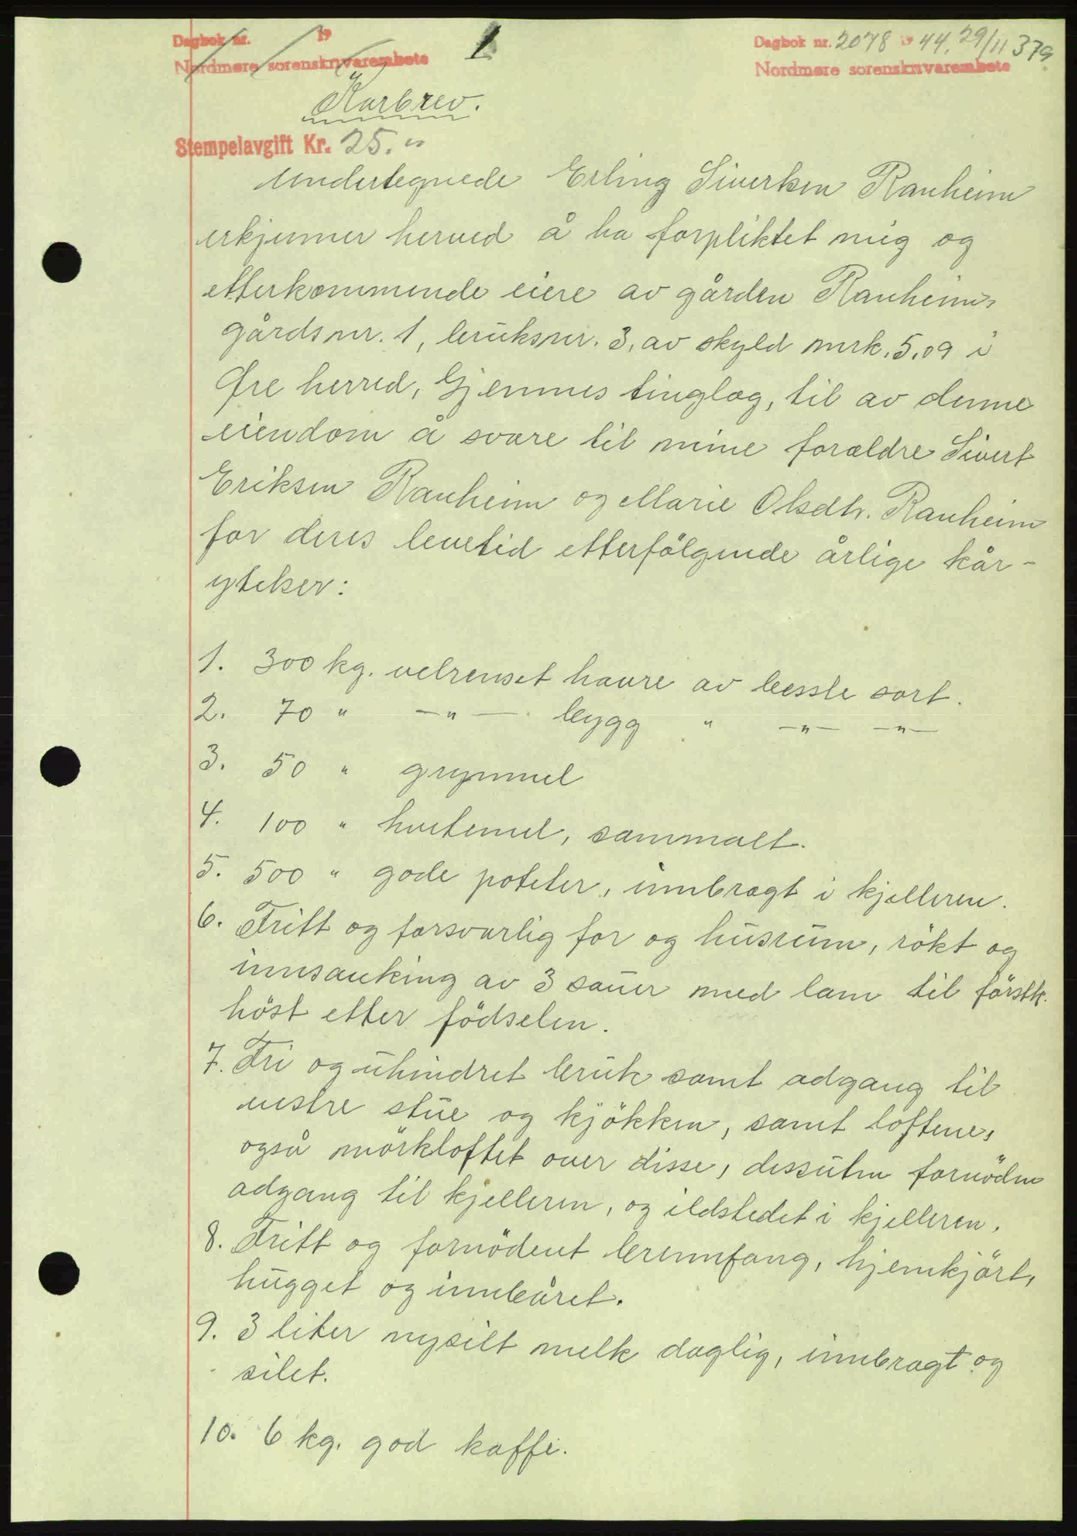 Dagbok nr. 19
Nordmøre sorenskriverembete
1
Dagbok nr. 2078 1944. 29/11 379
Nordmøre sorenskriverembete
Kårbrev.
Stempelavgift Kr. 25.
Undertegnede Erling Sivertsen Ranheim
erkjenner herved å ha forpliktet mig og
etterkommende eiere av gården Ranheim,
gårdsnr. 1, bruksnr. 3, av skyld mrk. 5,09 i
Øre herred, Gjemnes tinglag, til av denne
eiendom å svare til mine foreldre Sivert
Eriksen Ranheim og Marie Olsdtr. Ranheim
for deres levetid etterfölgende årlige kår-
ytelser:
1. 300 kg. velrenset havre av beste sort.
2. 70 " —"— bygg " —"— —"—
3. 50 " grynmel
4. 100 " hvetemel, sammalt.
5. 500 " gode poteter, innbragt i kjelleren.
6. Fritt og forsvarlig for og husrum, rökt og
innsanking av 3 sauer med lam til förstk.
höst etter födselen.
7. Fri og uhindret bruk samt adgang til
vestre stue og kjökken, samt loftene,
også mörkloftet over disse, dessuten fornöden
adgang til kjelleren, og ildstedet i kjelleren.
8. Fritt og fornödent brennfang, hjemkjört,
hugget og innbåret.
9. 3 liter nysilt melk daglig, innbragt og
silet.
10. 6 kg. god kaffe.